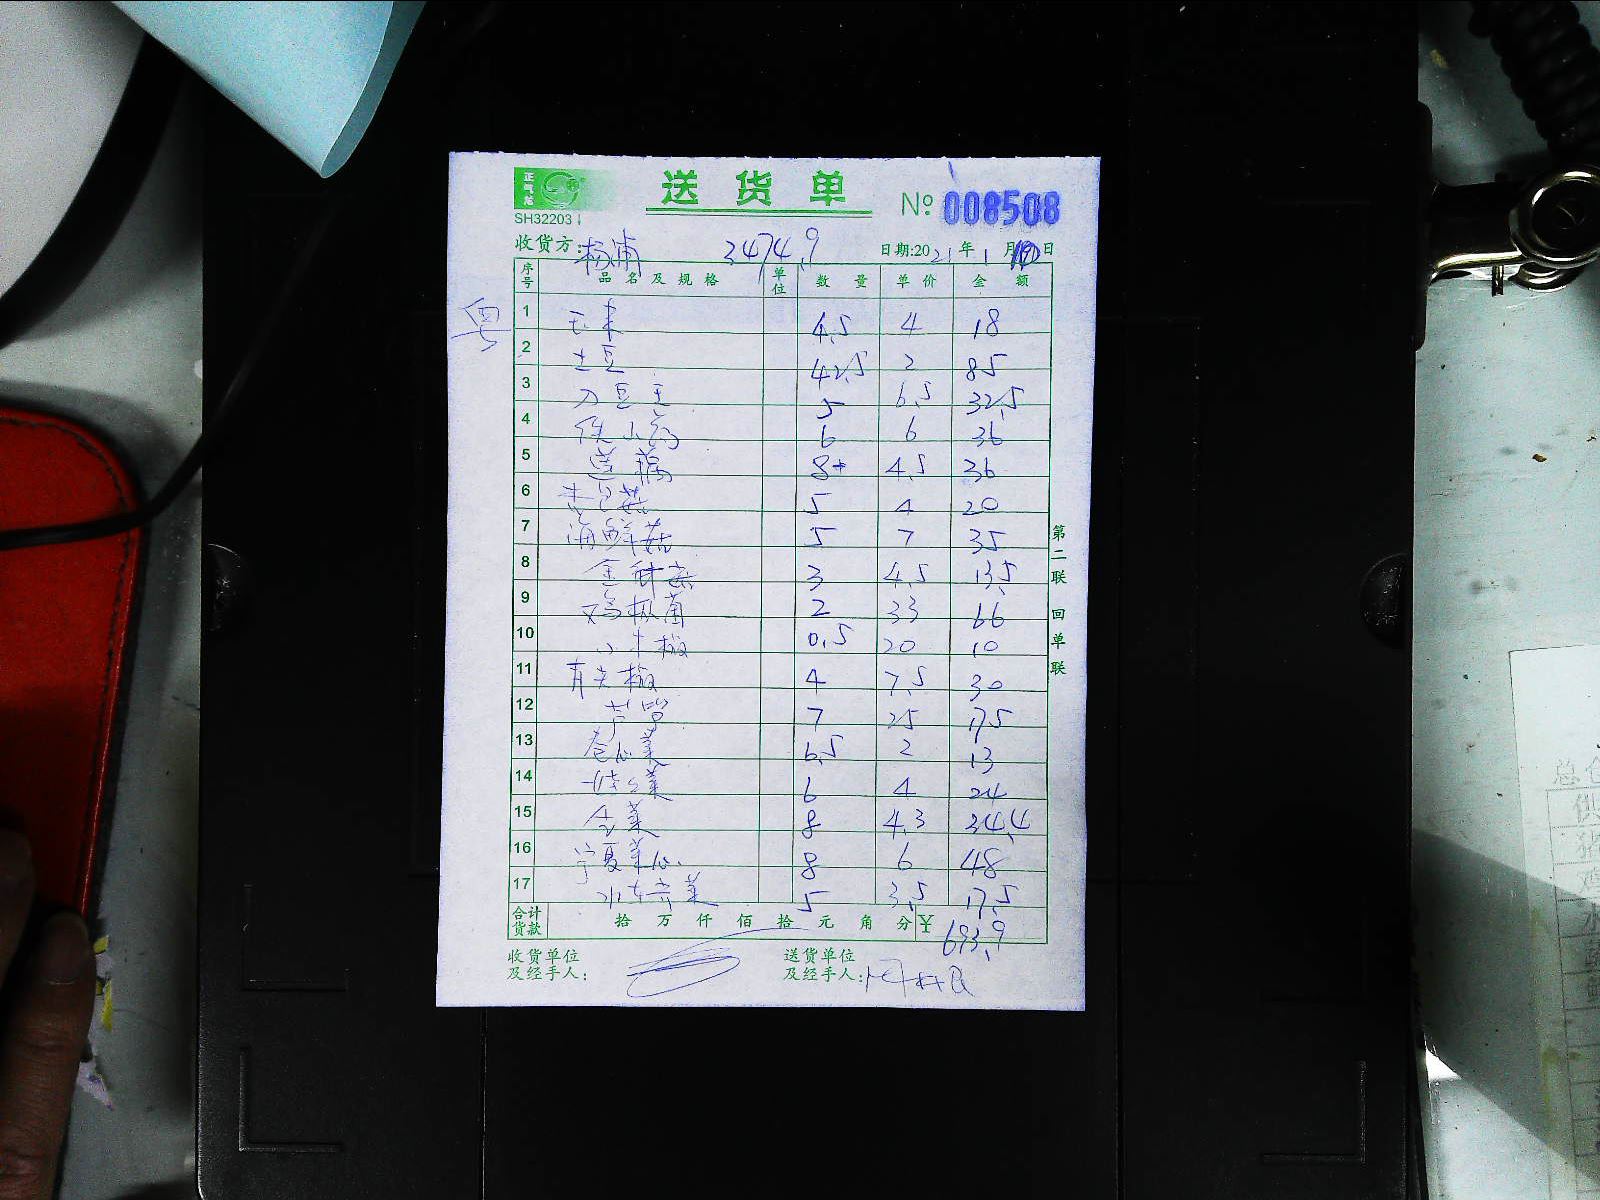 正气龙
送货单
№ 008508
SH32203
收货方: 杨浦 3474.9 日期:2021年1月 日
序号 品名及规格 单位 数量 单价 金额
粤
1 玉米 4.5 4 18
2 土豆 42.5 2 85
3 刀豆王 5 6.5 32.5
4 铁山药 6 6 36
5 莲藕 8 4.5 36
6 杏鲍菇 5 4 20
7 海鲜菇 5 7 35
8 金针菇 3 4.5 13.5
9 鸡枞菌 2 33 66
10 小米椒 0.5 20 10
11 青尖椒 4 7.5 30
12 芦笋 7 25 175
13 卷心菜 6.5 2 13
14 6 4 24
15 8 4.3 34.4
16 宁夏菜心 8 6 48
17 5 3.5 17.5
合计货款 拾 万 仟 佰 拾 元 角 分 ¥ 693.9
收货单位及经手人:
送货单位及经手人:
第二联 回单联